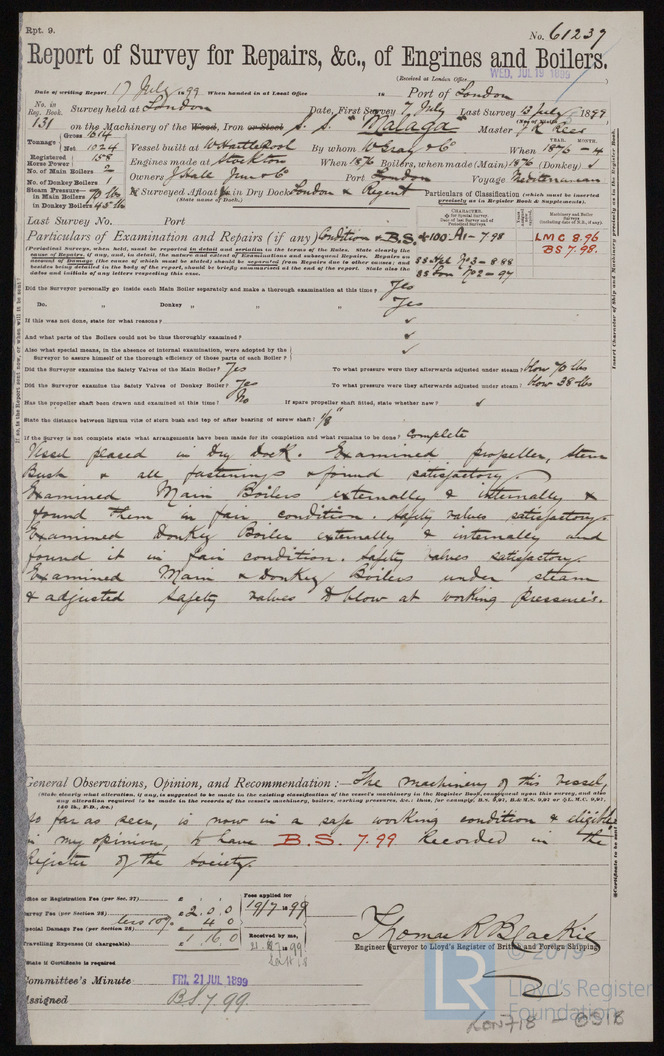 Rpt. 9.
No. 61239
Report of Survey for Repairs, &c., of Engines and Boilers.
(Received at London Office WED, JUL 19 1899 )
Date of writing Report 17 July 1899 When handed in at Local Office 18 Port of London
No. in Reg. Book. 131 Survey held at London Date, First Survey 7 July Last Survey 13 July 1899
on the Machinery of the Wood, Iron or Steel S. S. "Malaga" Master J. R. Rees
Tonnage Gross 1614 Net 1024 Vessel built at W Hartlepool By whom W Gray & Co When 1876 - 4
Registered Horse Power 158 Engines made at Stockton When 1876 Boilers, when made (Main) 1876 (Donkey) ✓
No. of Main Boilers 2 Owners J Hall Junr & Co Port London Voyage Mediterranean
No. of Donkey Boilers 1
Steam Pressure in Main Boilers 70 lbs If Surveyed Afloat or in Dry Dock London & Regent
(State name of Dock.)
in Donkey Boilers 45 lb
Particulars of Classification (which must be inserted precisely as in Register Book & Supplements).
Last Survey No. Port
Particulars of Examination and Repairs (if any) Condition & B.S. +100 A1 - 7.98
LMC 8.96
BS 7.98.
SS Hpl No 3 - 8 88
SS Lon No 2 - 97
(Periodical Surveys, when held, must be reported in detail and seriatim in the terms of the Rules. State clearly the
cause of Repairs, if any, and, in detail, the nature and extent of Examinations and subsequent Repairs. Repairs on
account of Damage (the cause of which must be stated) should be separated from Repairs due to other causes; and
besides being detailed in the body of the report, should be briefly summarised at the end of the report. State also the
dates and initials of any letters respecting this case.
Did the Surveyor personally go inside each Main Boiler separately and make a thorough examination at this time? Yes
Do. " Donkey " " " Yes
If this was not done, state for what reasons? ✓
And what parts of the Boilers could not be thus thoroughly examined? ✓
Also what special means, in the absence of internal examination, were adopted by the
Surveyor to assure himself of the thorough efficiency of those parts of each Boiler? ✓
Did the Surveyor examine the Safety Valves of the Main Boiler? Yes To what pressure were they afterwards adjusted under steam? blow 70 lbs
Did the Surveyor examine the Safety Valves of Donkey Boiler? Yes To what pressure were they afterwards adjusted under steam? blow 38 lbs
Has the propeller shaft been drawn and examined at this time? No If spare propeller shaft fitted, state whether new? ✓
State the distance between lignum vitæ of stern bush and top of after bearing of screw shaft? 1/8"
If the Survey is not complete state what arrangements have been made for its completion and what remains to be done? complete
Vessel placed in Dry Dock. Examined propeller, stern
Bush & all fastenings & found satisfactory.
Examined Main Boilers externally & internally &
found them in fair condition. Safety valves satisfactory.
Examined Donkey Boiler externally & internally and
found it in fair condition. Safety valves satisfactory.
Examined Main & Donkey Boilers under steam
& adjusted safety valves to blow at working pressures.
General Observations, Opinion, and Recommendation:— The machinery of this vessel,
(State clearly what alteration, if any, is suggested to be made in the existing classification of the vessel's machinery in the Register Book, consequent upon this survey, and also
any alteration required to be made in the records of the vessel's machinery, boilers, working pressures, &c.: thus, for example, B.S. 9,91, B.& M.S. 9,91 or L.M.C. 9,91,
140 lb., F.D., &c.)
so far as seen, is now in a safe working condition & eligible
in my opinion, to have B.S. 7.99 Recorded in the
Register of the Society.
Office or Registration Fee (per Sec. 27) £
Survey Fee (per Section 28) £ 2 . 0 . 0
less 10% 4 . 0
Special Damage Fee (per Section 28) £
Travelling Expenses (if chargeable) £ 1 . 16 . 0
Fees applied for 19/7 1899
Received by me,
State if Certificate is required
Thomas R Blackie
Engineer Surveyor to Lloyd's Register of British and Foreign Shipping.
Committee's Minute FRI. 21 JUL 1899
Assigned B.S. 7.99
© 2019
LR
Lloyd's Register
Foundation
LON718 - 0318